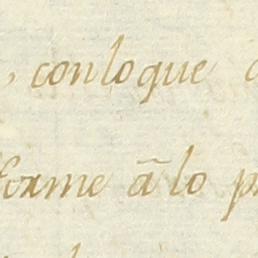 , conloque
forme ã lo